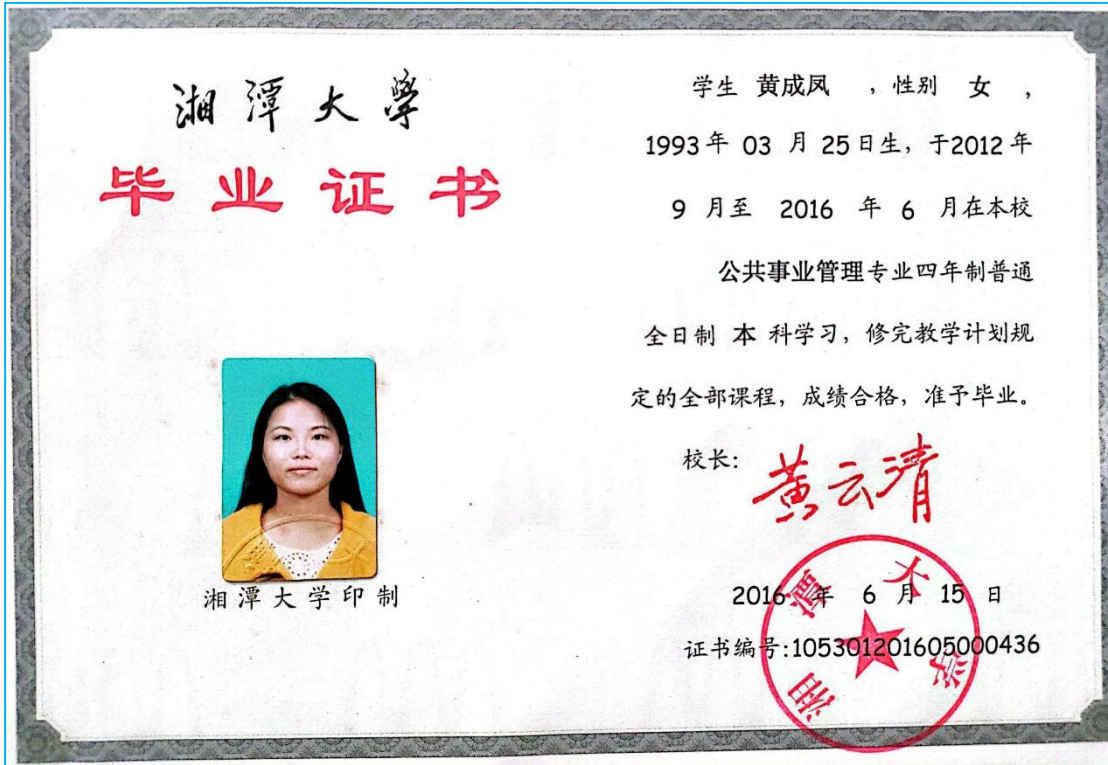 湘潭大學
毕业证书
湘潭大学印制
学生 黄成凤 ，性别 女 ，
1993年 03 月 25日生，于2012年
9 月至 2016 年 6 月在本校
公共事业管理专业四年制普通
全日制 本 科学习，修完教学计划规
定的全部课程，成绩合格，准予毕业。
校长：黄云清
2016 年 6 月 15 日
证书编号:105301201605000436
湘潭大学